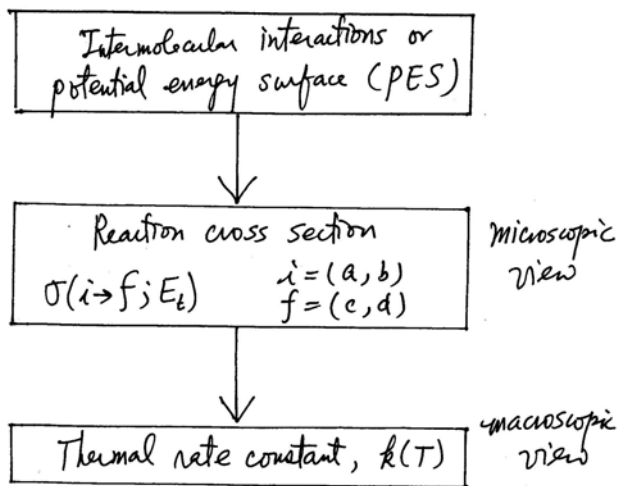 Intermolecular interactions or
potential energy surface (PES)
Reaction cross section
σ(i→f; Eₜ)
i = (a, b)
f = (c, d)
microscopic
view
Thermal rate constant, k(T)
macroscopic
view